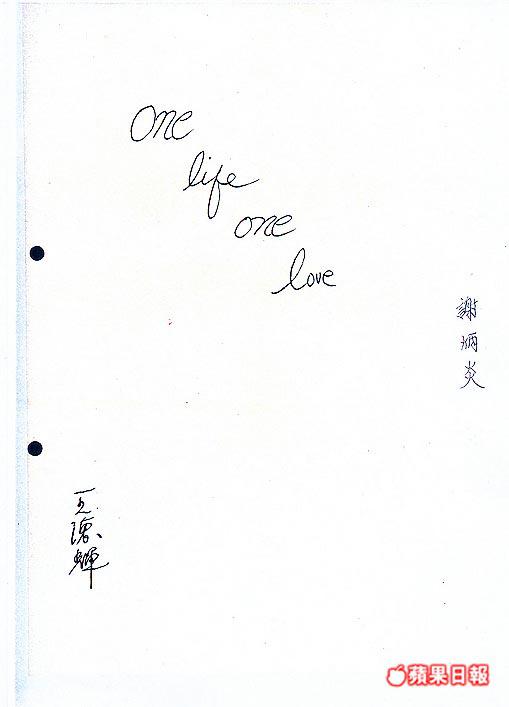 One
life
one
love
謝炳炎
王陳蟬
蘋果日報